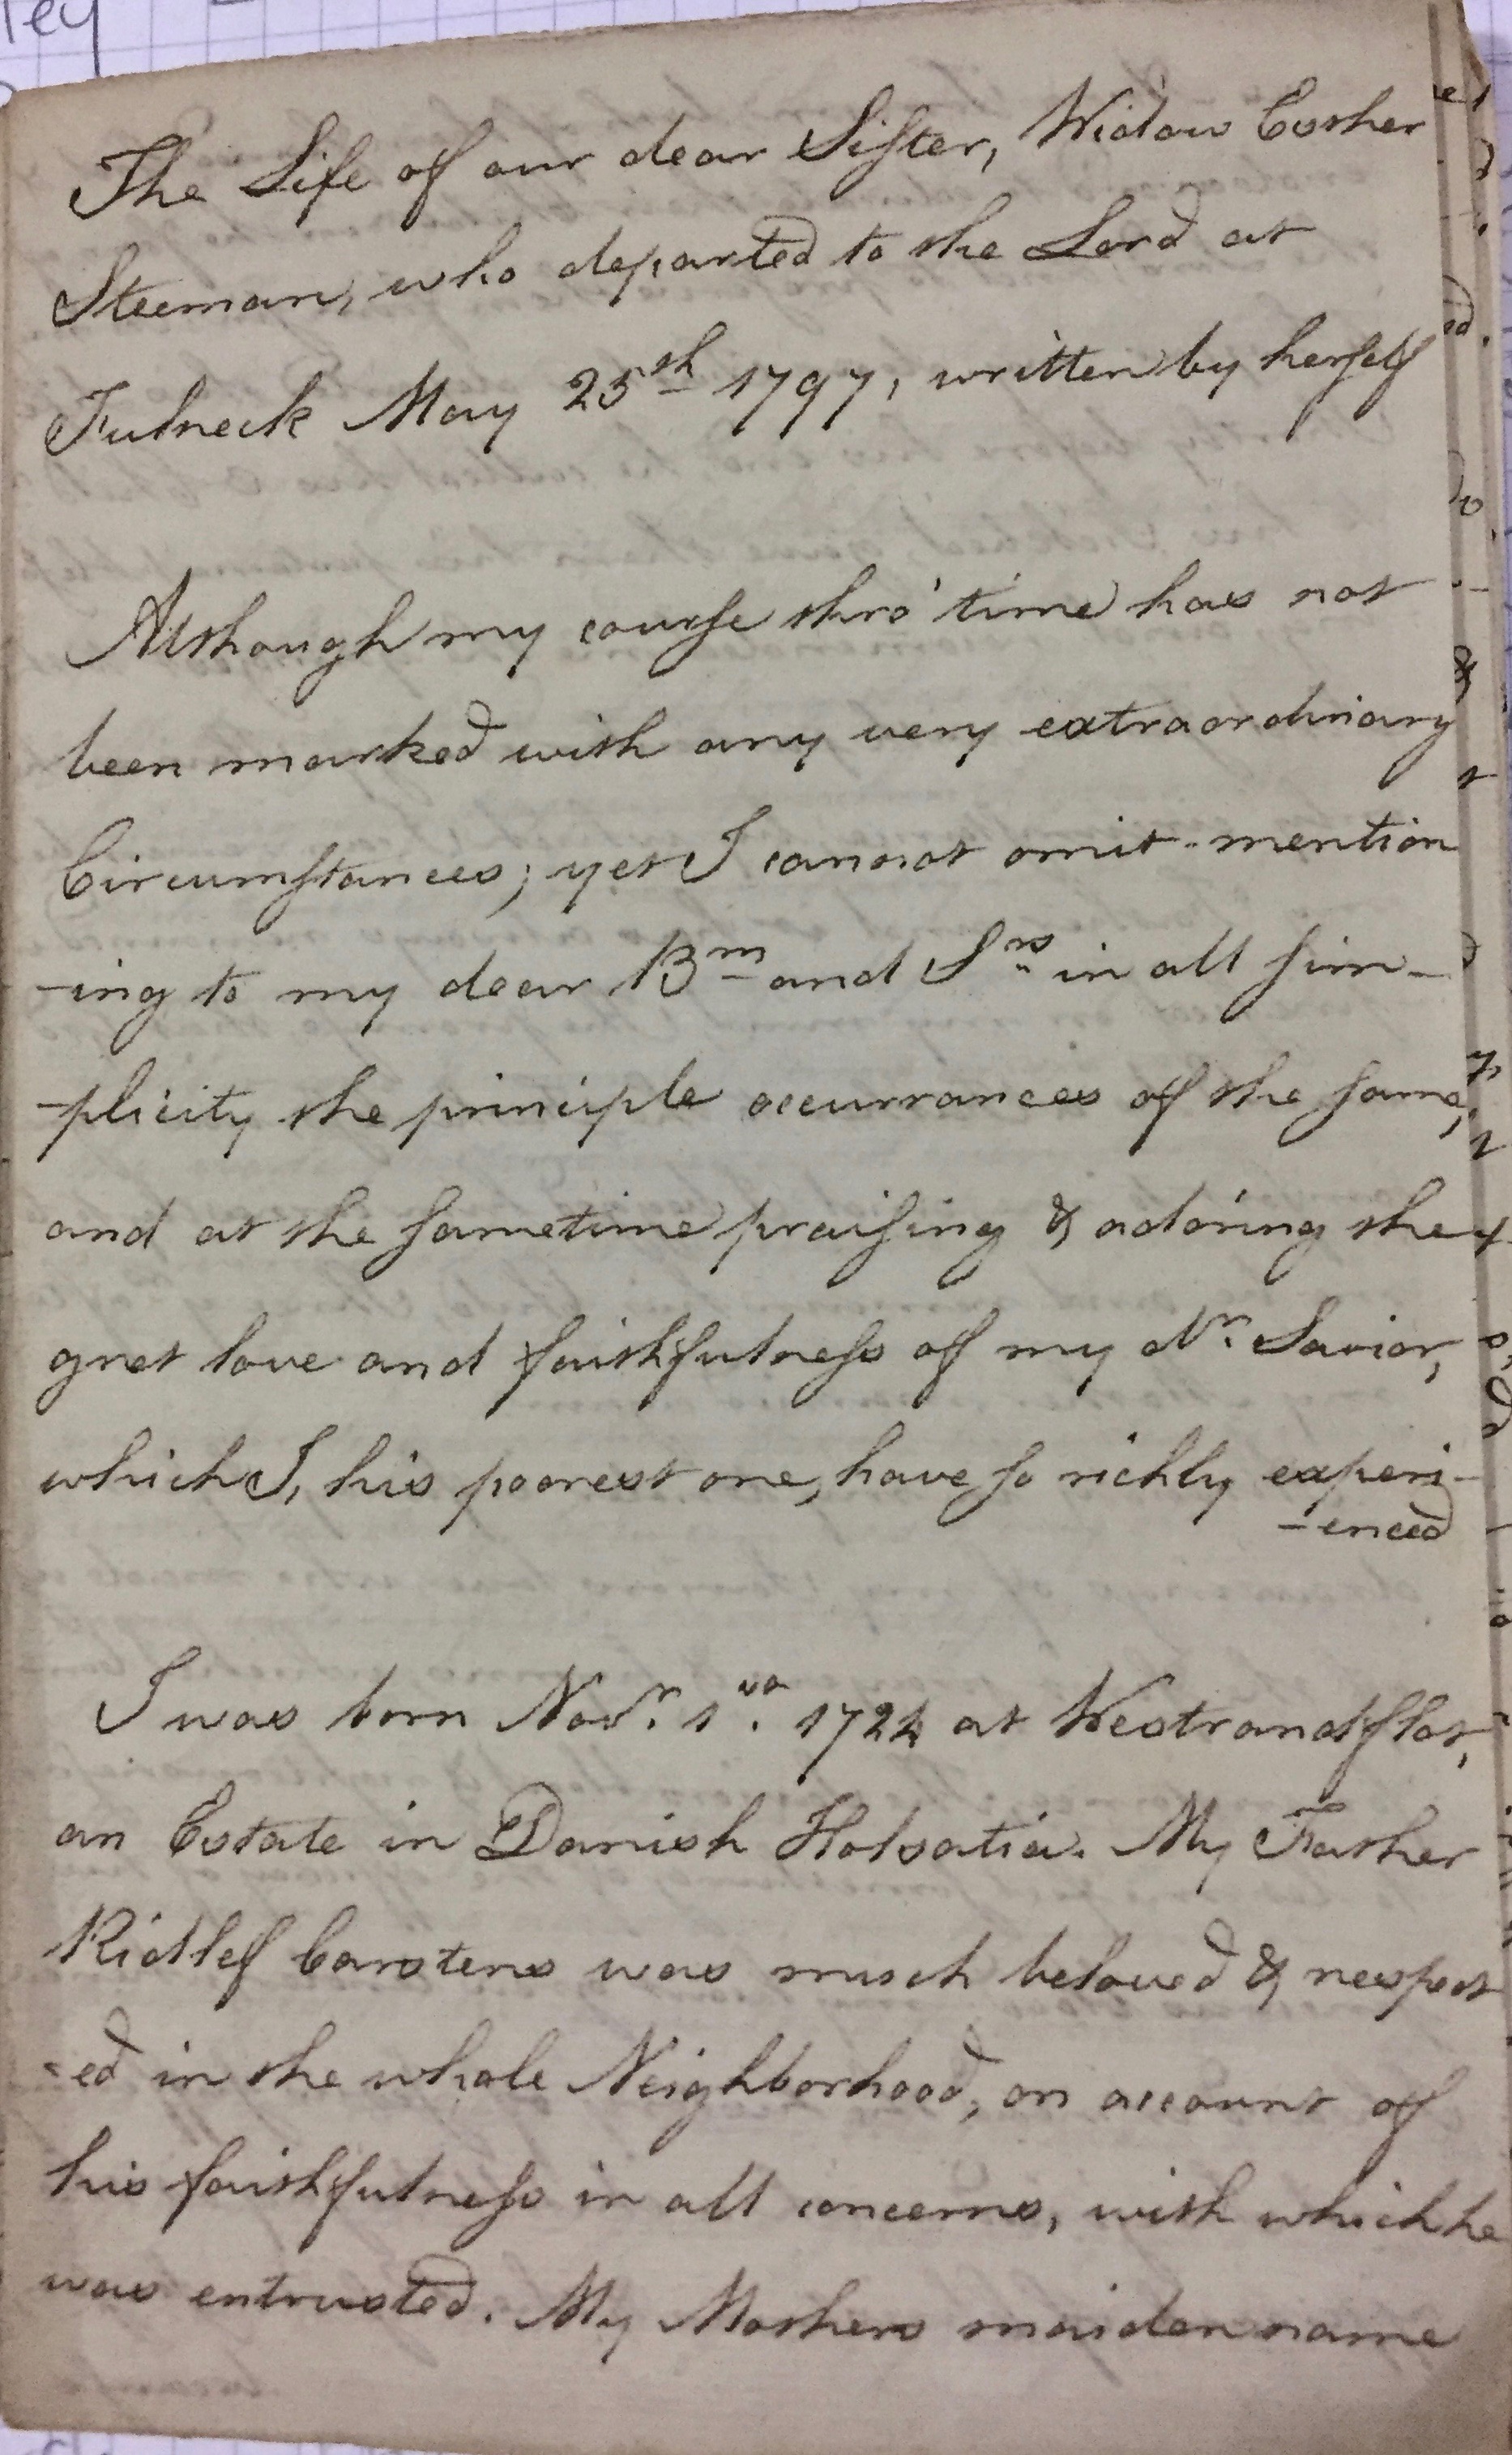 ley
The Life of our dear Sister, Widow Esther
Steeman, who departed to the Lord at
Fulneck May 25th 1797, written by herself
Although my course thro' time has not
been marked with any very extraordinary
Circumstances; yet I cannot omit mention
-ing to my dear Brn and Srs in all sim-
-plicity the principle occurrances of the same,
and at the sametime praising & adoring the
gret love and faithfulness of my dr. Savior,
which I, his poorest one, have so richly experi-
-enced
I was born Novr. 1st. 1724 at Westrandflot,
an Estate in Danish Holsatia. My Father
Ridlef Carstens was much beloved & respect
-ed in the whole Neighborhood, on account of
his faithfulness in all concerns, with which he
was entrusted. My Mothers maiden name